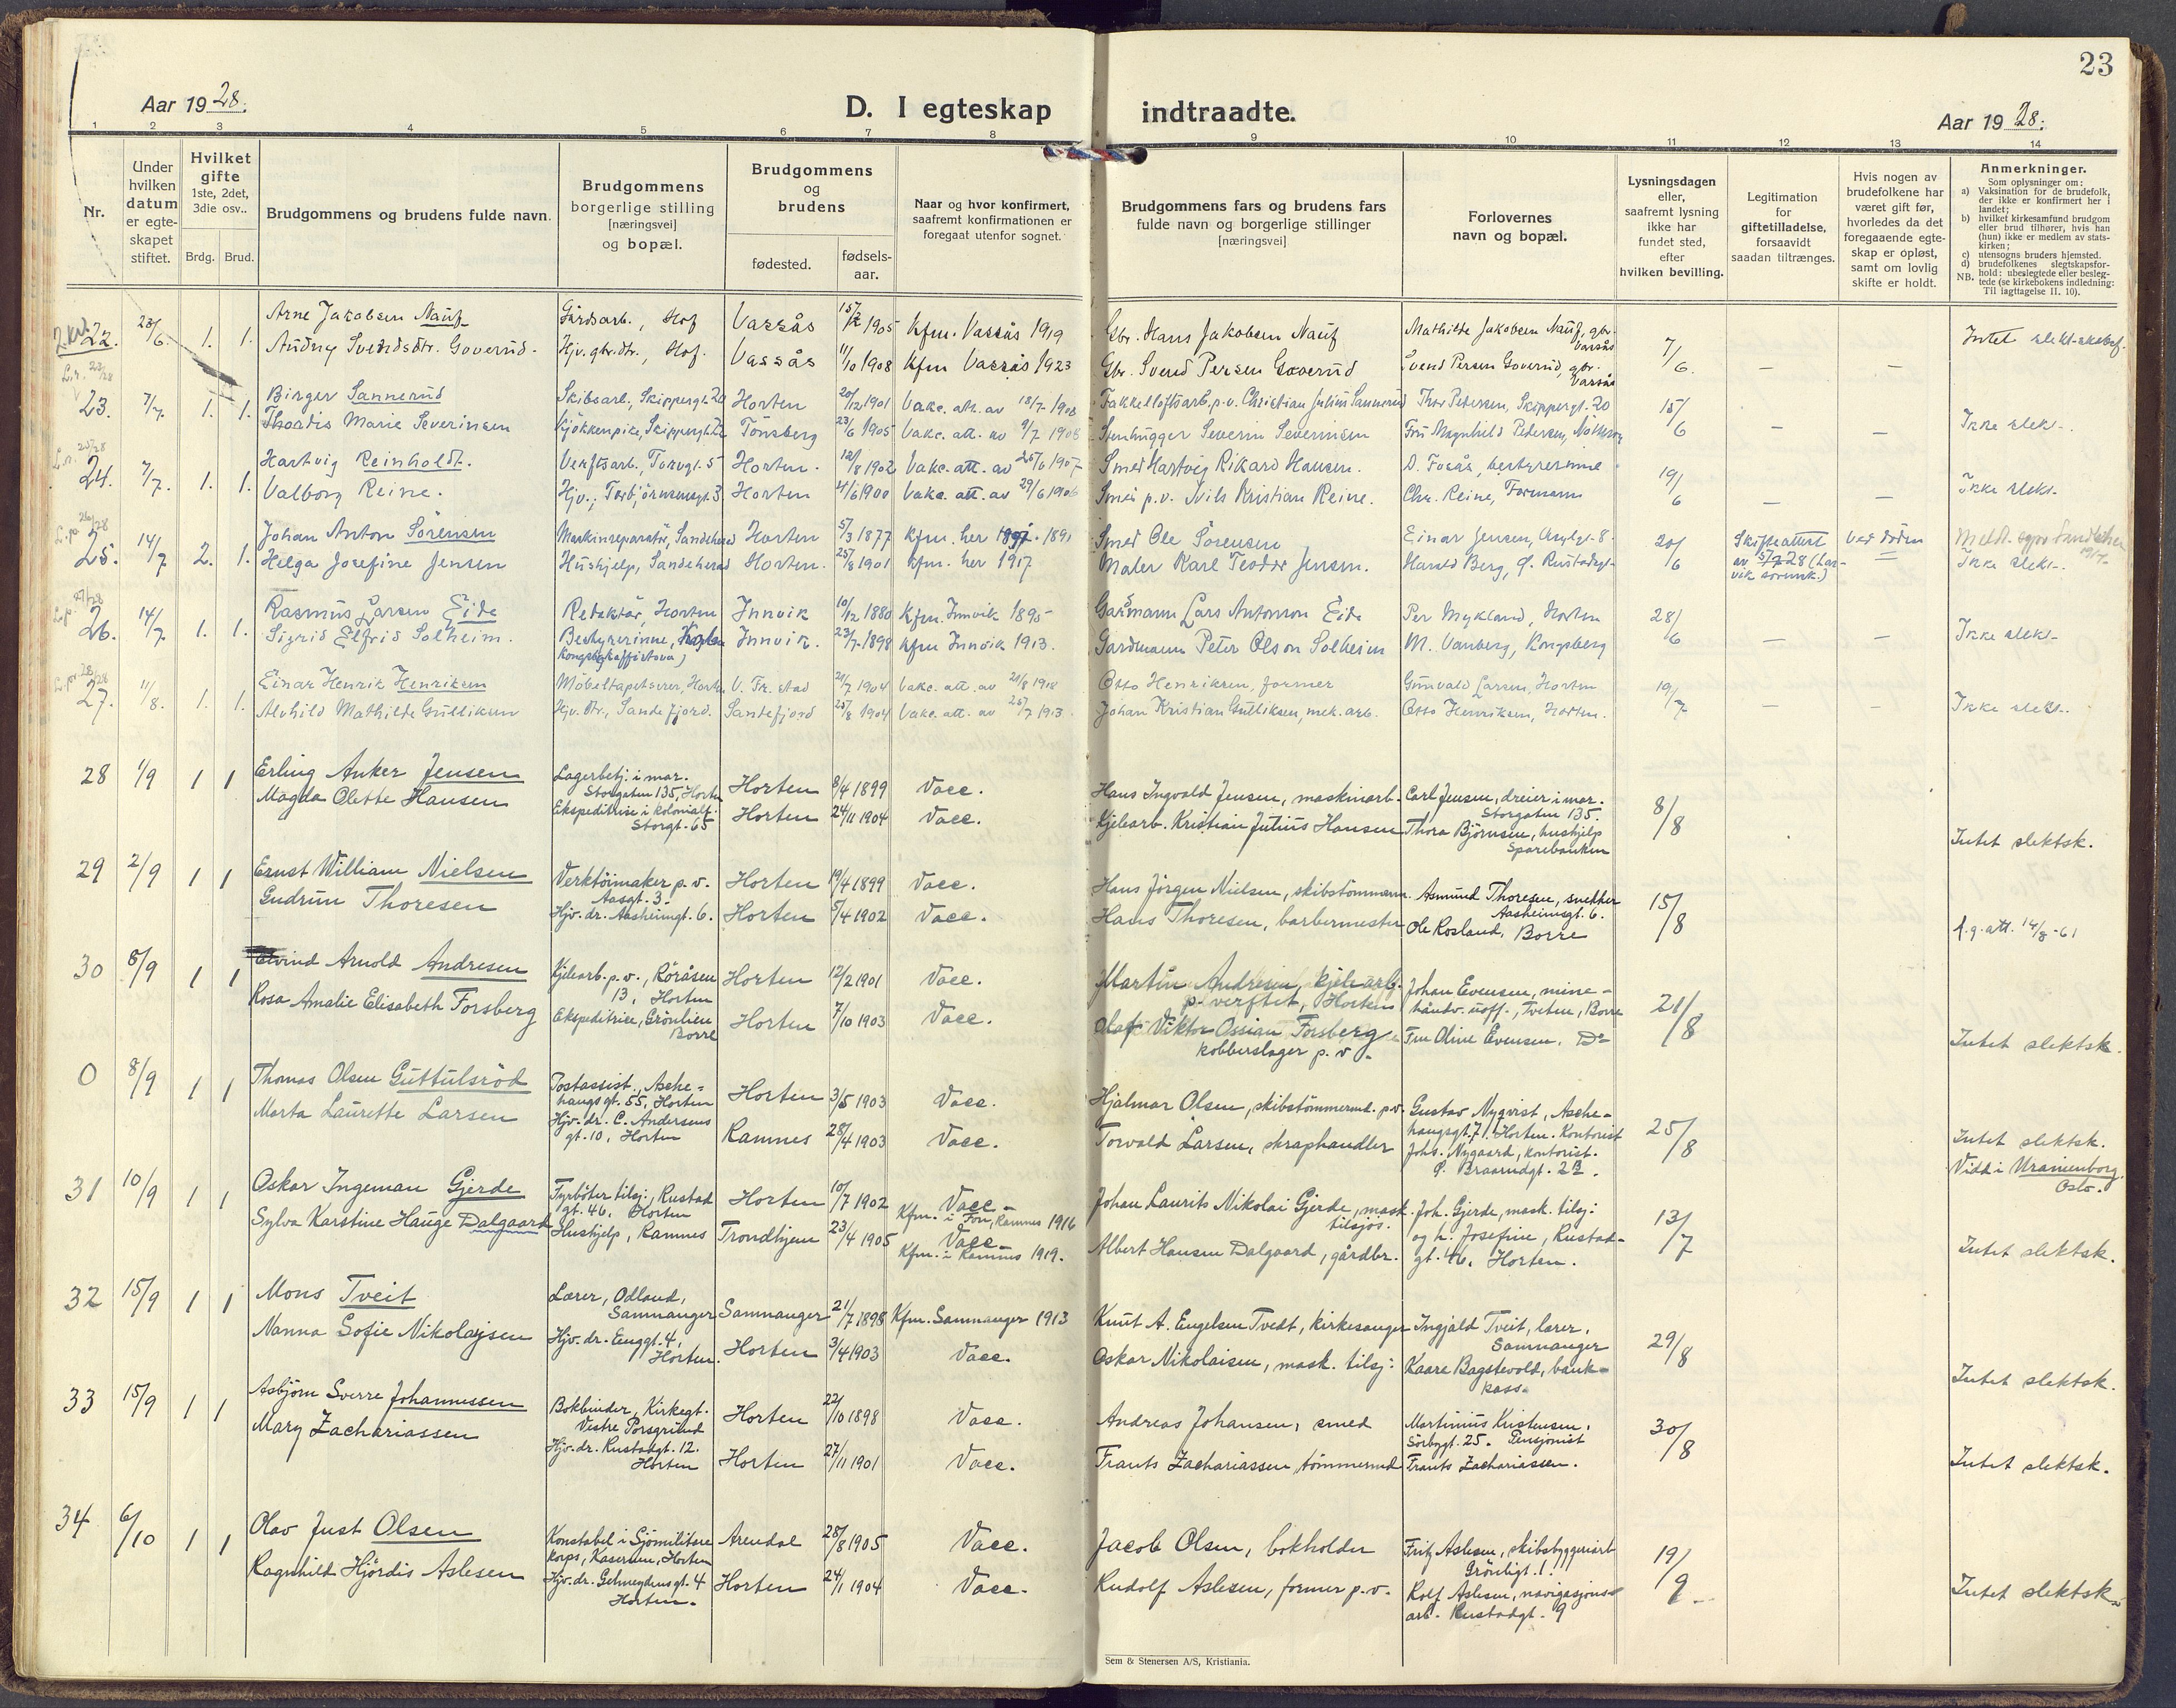 23
Aar 1928.
D. I egteskap indtraadte.
Aar 1928.
1 2 3 4 5 6 7 8 9 10 11 12 13 14
Nr.
Under hvilken datum er egteskapet stiftet.
Hvilket gifte 1ste, 2det, 3die osv..
Brdg. Brud.
Brudgommens og brudens fulde navn.
Brudgommens borgerlige stilling [næringsvei] og bopæl.
Brudgommens og brudens
fødested. fødselsaar.
Naar og hvor konfirmert, saafremt konfirmationen er foregaat utenfor sognet.
Brudgommens fars og brudens fars fulde navn og borgerlige stillinger [næringsvei]
Forlovernes navn og bopæl.
Lysningsdagen eller, saafremt lysning ikke har fundet sted, efter hvilken bevilling.
Legitimation for giftetilladelse, forsaavidt saadan tiltrænges.
Hvis nogen av brudefolkene har været gift før, hvorledes da det foregaaende egteskap er opløst, samt om lovlig skifte er holdt.
Anmerkninger.
Som oplysninger om:
a) Vaksination for de brudefolk, der ikke er konfirmert her i landet;
b) hvilket kirkesamfund brudgom eller brud tilhører, hvis han (hun) ikke er medlem av statskirken;
c) utensogns bruders hjemsted.
d) brudefolkenes slegtskapsforhold: ubeslegtede eller beslegtede (se kirkebokens indledning: Til iagttagelse II. 10).
NB.
22. 23/6. 1. 1. Arne Jakobsen Nauf Gårdsarb., Hof Vassås 1905 Kfm. Vassås 1919 Gbr. Hans Jakobsen Nauf Mathilde Jakobsen Nauf, gbr. Vassås 7/6 – – Intet slekt-skap
Audny Svendsdtr. Goverud. Hjv. gbr.dtr., Hof. Vassås 11/10 1908 Kfm Vassås 1923 Gbr. Svend Persen Goverud Svend Persen Goverud, gbr. Vassås
23. 7/7. 1. 1. Birger Sannerud Skibsarb., Skippergt. 20 Horten 20/12 1901 Vakc. att. av 18/7 1908 Fakkelloftsarb. p.v. Christian Julius Sannerud Thor Pedersen, Skippergt. 20 15/6 – – Ikke slekt.
Thordis Marie Severinsen Kjökkenpike, Skippergt. Tönsberg 23/6 1905 Vakc. att. av 9/7 1908 Stenhugger Severin Severinsen Fru Magnhild Pedersen,
24. 7/7. 1. 1. Hartvig Reinholdt. Verftsarb., Torvgt. 5 Horten. 12/8 1902 Vakc. att. av 25/6 1907 Smed Hartvig Rikard Hansen. D. Fosås, bestyrerinne 19/6 – – Ikke slekt.
Valborg Reine. Hjv., Torbjörnsensgt. 3. Horten 4/6 1900 Vakc. att. av 29/6 1906 Smed p.v. Nils Kristian Reine. Chr. Reine, Formann
25. 14/7 2. 1. Johan Anton Sörensen Maskinreparatör, Sandeherad Horten 5/3 1877 Kfm. her 1891 Smed Ole Sörensen Einar Jensen, Asylgt. 8. 20/6 Skifteattest av 5/7 28 (Larvik sorensk.) Ved döden
Helga Josefine Jensen Hushjelp, Sandeherad Horten. 25/8 1901 Kfm. her 1917 Maler Karl Teodor Jensen. Harald Berg, Ø. Rustadgt. Ikke slekt.
26. 14/7 1. 1. Rasmus Larsen Eide Redaktör, Horten Innvik 10/12 1880 Kfm. Innvik 1895 Gardmann Lars Antonson Eide Per Mykland, Horten 28/6 – – Ikke slekt.
Sigrid Elfrid Solheim. Bestyrerinne, Kongsbg. kaffistova) Innvik. 23/7 1898 Kfm Innvik 1913. Gardmann Peter Olson Solheim M. Vanberg, Kongsberg
27. 11/8. 1. 1. Einar Henrik Henriksen Möbeltapetserer, Horten V. Fr. stad 21/7 1904 Vakc. att. av 21/8 1918 Otto Henriksen, former Gunvald Larsen, Horten 19/7 – – Ikke slekt.
Alvhild Mathilde Gulliksen Hjv. dtr., Sandefjord. Sandefjord 25/8 1904 Vakc. att. av 25/7 1913. Johan Kristian Gulliksen, mek. arb. Otto Henriksen, Horten.
28 1/9 1 1 Erling Anker Jensen Lagerbetj. i mar. Storgaten 135, Horten Horten 8/4 1899 Vacc. Hans Ingvald Jensen, maskinarb. Carl Jensen, dreier i mar. Storgaten 135. 8/8 Intet slektsk.
Magda Olette Hansen Ekspeditrise i kolonialf. Storgt. 65 Horten 24/11 1904 Vacc. Kjelearb. Kristian Julius Hansen Thora Björnsen, hushjelp Sparebanken
29 2/9 1 1 Ernst William Nielsen Verktöimaker p.v. Aasgt. 3. Horten 19/4 1899 Vacc. Hans Jörgen Nielsen, skibstömmerm. Asmund Thoresen, snekker Aasheimsgt. 6. 15/8 f.g. att. 14/8-61
Gudrun Thoresen Hjv. dr. Aasheimgt. 6. Horten 5/4 1902 Vacc. Hans Thoresen, barbermester Ole Rosland, Borre
30 8/9 1 1 Eivind Arnold Andresen Kjelearb. p.v., Röråsen 13, Horten Horten 12/2 1901 Vacc. Martin Andresen, kjelearb. p. verftet, Horten Johan Evensen, minehåndv. uoff., Tveten, Borre 21/8 Intet slektsk.
Rosa Amalie Elisabeth Forsberg Ekspeditrice, Grönlien Borre Horten 7/10 1903 Vacc. Olaf Viktor Ossian Forsberg kobberslager p.v. Fru Oline Evensen. Do
0 8/9 1 1 Thomas Olsen Guttulsröd Postassist., Aschehaugsgt. 55, Horten Horten 3/5 1903 Vacc. Hjalmar Olsen, skibstömmermd. p.v. Gustav Nyqvist, Aschehaugsgt. 71. Horten. Kontorist 25/8 Intet slektsk.
Marta Laurette Larsen Hjv. dr. C. Andersens gt. 10, Horten Ramnes 28/4 1903 Vacc. Torvald Larsen, skraphandler Johs. Nygaard, kontorist. Ø. Braarudgt. 2B. Vidd i Uranienborg Oslo.
31 10/9 1 1 Oskar Ingeman Gjerde Fyrböter tilsj., Rustadgt. 46, Horten Horten 10/7 1902 Vacc – Kfm. i Fon, Ramnes 1916 Johan Laurits Nikolai Gjerde, mask. tilsjos. Joh. Gjerde, mask. tilsj: 13/7 Intet slektsk.
Sylva Karstine Hauge Dalgaard Hushjelp, Ramnes Trondhjem 23/4 1905 Vacc – Kfm. i Ramnes 1919. Albert Hansen Dalgaard, gårdbr. og h. Josefine, Rustadgt. 46. Horten.
32 15/9 1 1 Mons Tveit Lærer, Odland, Samnanger Samnanger 21/7 1898 Kfm. Samnanger 1913 Knut A. Engelsen Tvedt, kirkesanger Ingjald Tveit, lærer, Samnanger 29/8 Intet slektsk.
Nanna Sofie Nikolaysen Hjv. dr. Enggt. 4, Horten. Horten 3/4 1903 Vacc. Oskar Nikolaisen, mask. tilsj: Kaare Bagstevold, bankkass.
33 15/9 1 1 Asbjörn Sverre Johannessen Bokbinder, Kirkegt. Vestre Porsgrund Horten 22/10 1898 Vacc. Andreas Johansen, smed Martinius Kristensen, Sörbygt. 25. Pensjonist 30/8 Intet slektsk.
Mary Zachariassen Hjv. dr. Rustadgt. 12. Horten Horten 27/11 1901 Vacc. Frants Zachariassen, tömmermd Frants Zachariassen.
34 6/10 1 1 Olav Just Olsen Konstabel i Sjömilitære Korps, Kasernen, Horten Arendal 28/8 1905 Vacc. Jacob Olsen, bokholder Fritz Aslesen, skibsbyggeriarb Grönligt. 1. 19/9 Intet slektsk.
Ragnhild Hjördis Aslesen Hjv. dr. Gehneydensgt. 4 Horten. Horten 24/1 1904 Vacc. Rudolf Aslesen, former p.v. Rolf Aslesen, navigasjonsarb. Rustadgt. 9
Sem & Stenersen A/S, Kristiania.